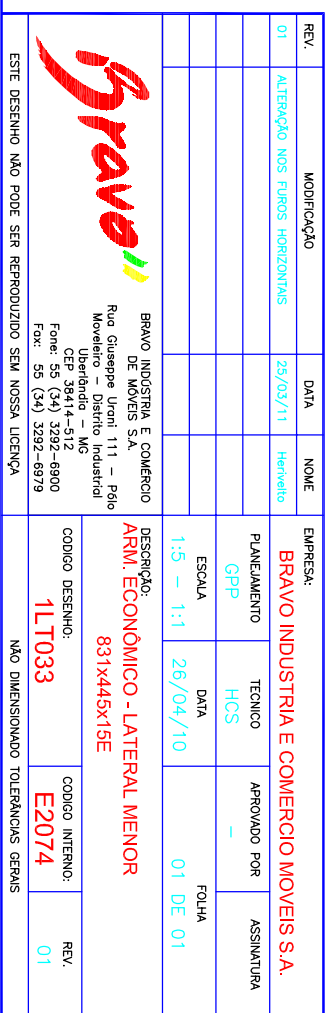 REV. MODIFICAÇÃO DATA NOME
01 ALTERAÇÃO NOS FUROS HORIZONTAIS 25/03/11 Herivelto
Bravo
BRAVO INDÚSTRIA E COMÉRCIO
DE MÓVEIS S.A.
Rua Giuseppe Urani 111 – Pólo
Moveleiro – Distrito Industrial
Uberlândia – MG
CEP 38414–512
Fone: 55 (34) 3292–6900
Fax: 55 (34) 3292–6979
ESTE DESENHO NÃO PODE SER REPRODUZIDO SEM NOSSA LICENÇA
EMPRESA:
BRAVO INDUSTRIA E COMERCIO MOVEIS S.A.
PLANEJAMENTO TECNICO APROVADO POR ASSINATURA
GPP HCS –
ESCALA DATA FOLHA
1:5 – 1:1 26/04/10 01 DE 01
DESCRIÇÃO:
ARM. ECONÔMICO - LATERAL MENOR
831x445x15E
CODIGO DESENHO: CODIGO INTERNO: REV.
1LT033 E2074 01
NÃO DIMENSIONADO TOLERÂNCIAS GERAIS